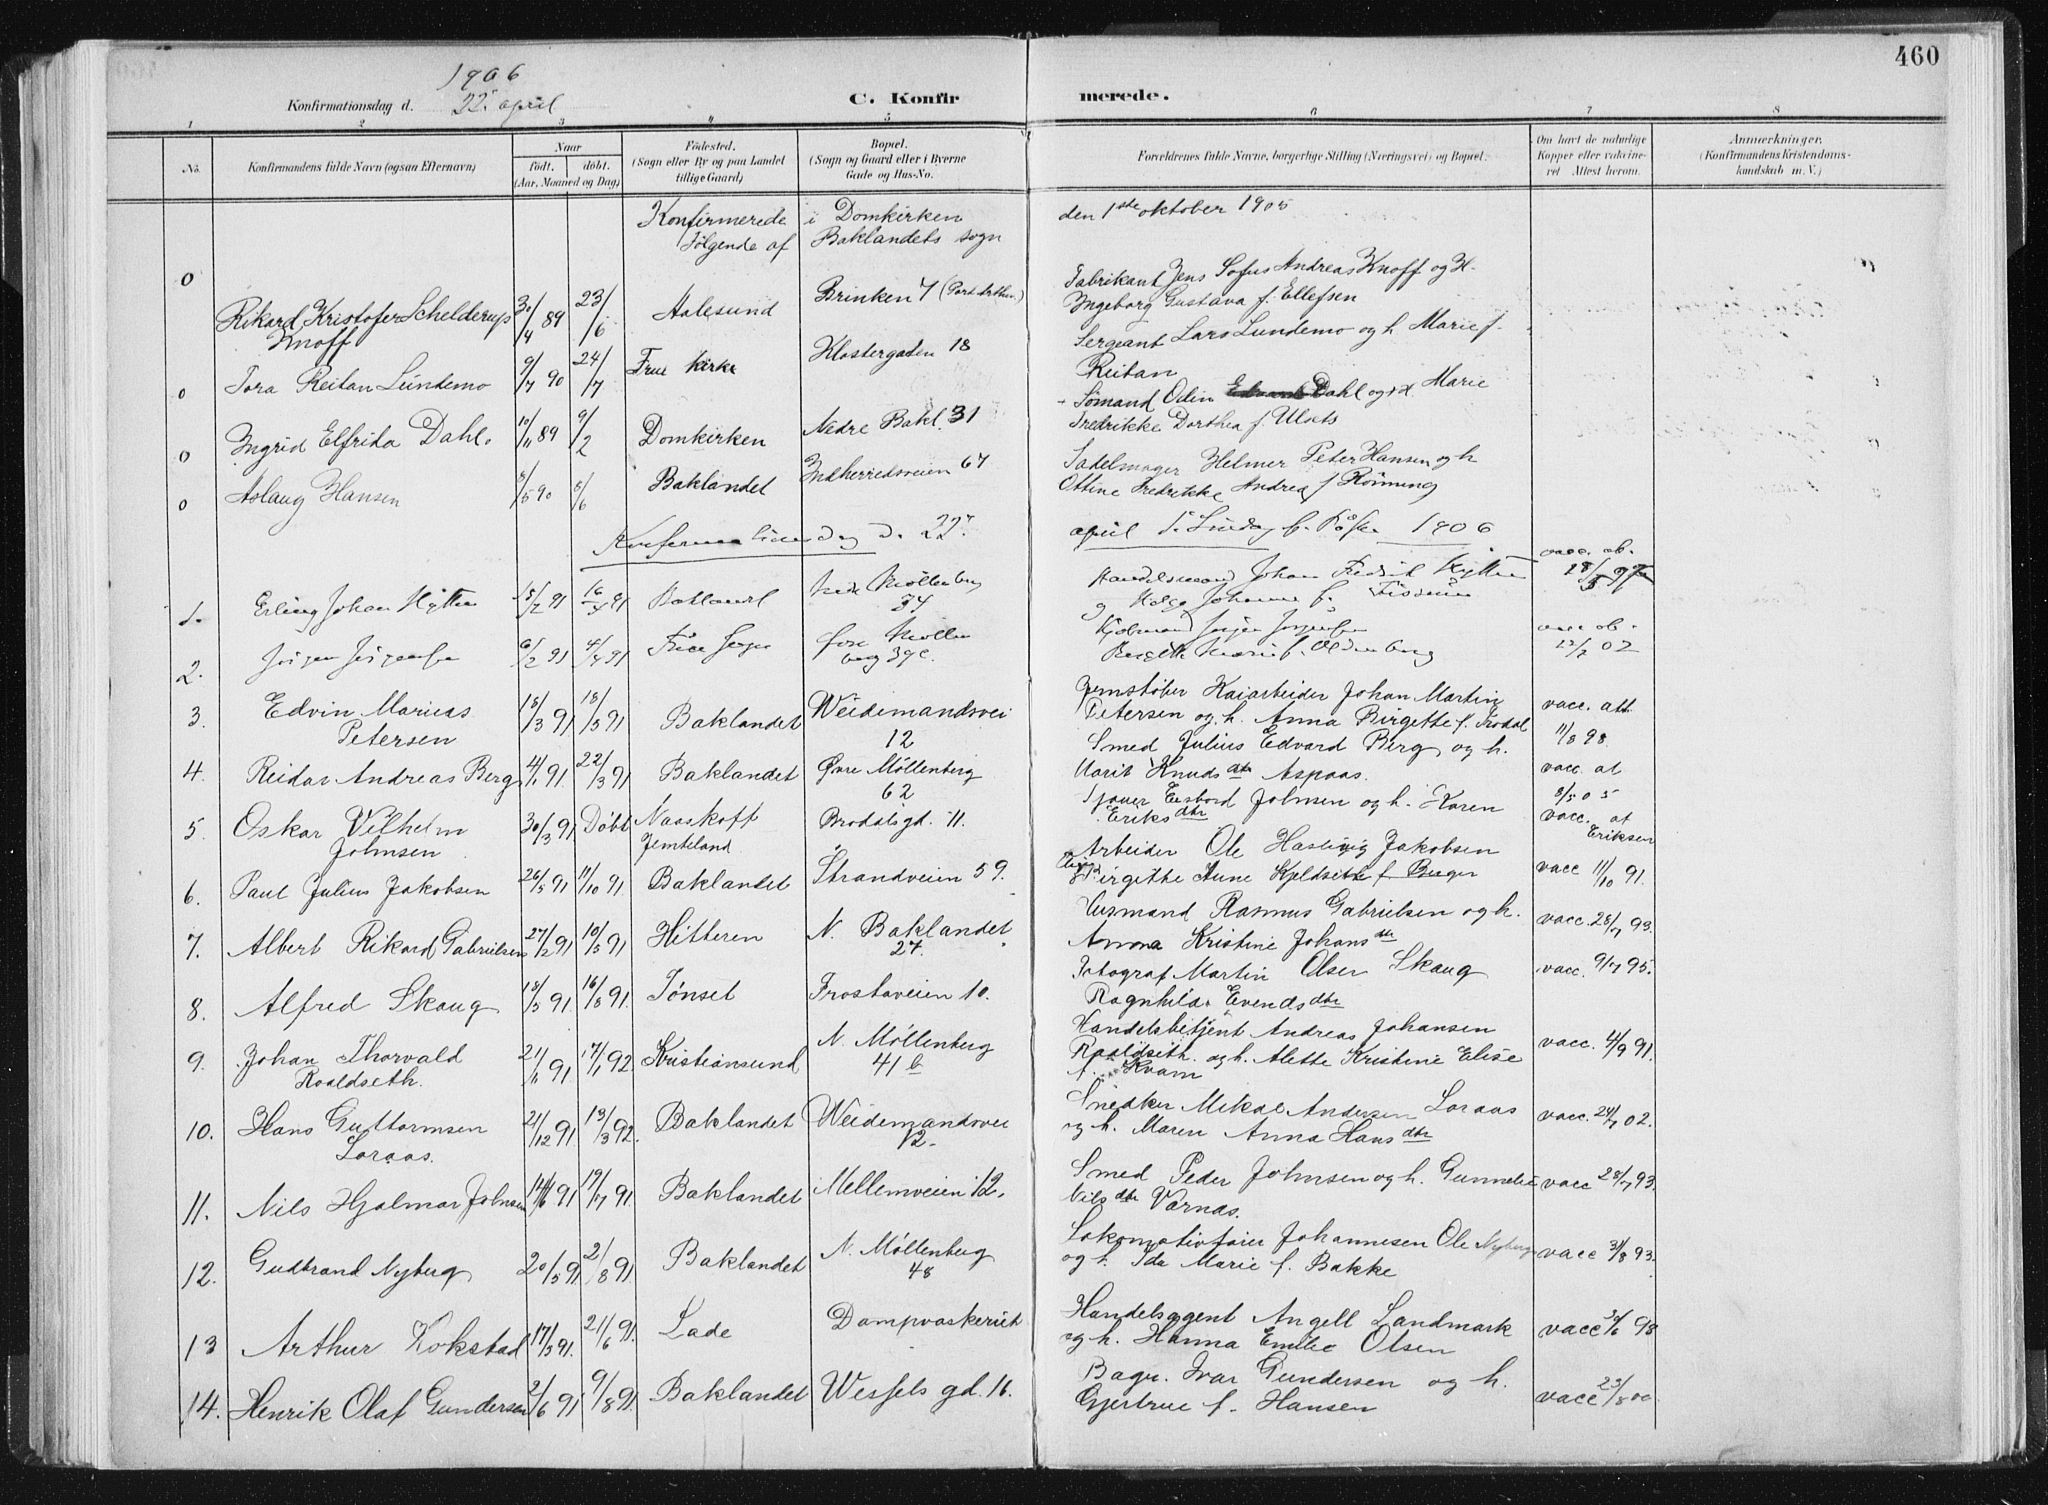 460
1906
Konfirmationsdag d. 22. april
C. Konfirmerede.
1 2 3 4 5 6 7 8
No. Konfirmandens fulde Navn (ogsaa Efternavn) Naar født. døbt. (Aar, Maaned og Dag) Fødested. (Sogn eller By og paa Landet tillige Gaard) Bopæl. (Sogn og Gaard eller i Byerne Gade og Hus-No. Forældrenes fulde Navne, borgerlige Stilling (Næringsvei) og Bopæl. Om havt de naturlige Kopper eller vakcineret Attest herom. Anmærkninger. (Konfirmandens Kristendomskundskab m. V.)
Konfirmerede i Domkirken den 1ste oktober 1905
følgende af Baklandets sogn
0 Rikard Kristofer Schelderup Knoff 30/4 89 23/6 Aalesund Brinken 7 (Port Arthur) Fabrikant Jens Sofus Andreas Knoff og H. Ingeborg Gustava f. Ellefsen
0 Tora Reitan Lundemo 9/7 90 24/7 Frue Kirke Klostergaden 18 Sergeant Lars Lundemo og h. Marie f. Reitan
0 Ingrid Elfrida Dahl. 10/11 89 9/2 Domkirken Nedre Bakl. 31 Sømand Odin Dahl og H. Marie Fredrikke Dorthea f. Ulsets
0 Aslaug Hansen 8/5 90 8/6 Baklandet Indherredsveien 67 Sadelmager Helmer Peter Hansen og h. Ottine Fredrikke Andrea f. Rönning
Konfirmationsdag d. 22. april 1. Søndag e. Påske 1906
1. Erling Johan Hytten 15/2 91 16/4 91 Baklandet Nedr Møllenberg 34 Handelsmand Johan Fredrik Hytten og Helga Johanna f. vacc. ob. 28/5
2. Jørgen Jørgensen 6/2 91 4/4 91 Øvre Møllenberg 39c. Jørgen Jørgensen Birgitte Marie f. Oldenborg vacc. ob. 12/7 02
3. Edvin Marius Petersen 18/3 91 18/5 91 Baklandet Weidemandsvei 12 Jernstøber Kaiarbeider Johan Martin Petersen og h. Anna Birgette f. Frodal vacc. att. 11/8 98
4. Reidar Andreas Berg 4/1 91 22/3 91 Baklandet Øvre Møllenberg 62 Smed Julius Edvard Berg og h. Marit Knudsdtr Aspaas. vacc. at 8/5 05
5. Oskar Vilhelm Johnsen 30/3 91 Døbt Naaskott Jemteland Brodalsgd. 11. Johnsen og h. Karen Eriksdtr vacc. af Eriksen
6. Paul Julius Jakobsen 26/5 91 11/10 91 Baklandet Strandveien 59. Arbeider Ole Jakobsen Birgithe Aune vacc 11/10 91.
7. Albert Rikard Gabrielsen 27/2 91 10/5 91 Hitteren N. Baklandet 27. Husmand Rasmus Gabrielsen og h. Anna Kristine Johansdtr vacc. 28/7 93.
8. Alfred Skaug 18/3 91 16/8 91. Tönset Frostaveien 10. Fotograf Martin Olsen Skaug Ragnhild Evendsdtr vacc. 9/7 95.
9. Johan Thorvald Roaldseth. 21/11 91 17/1 92 Kristiansund N. Møllenberg 41 b Handelsbetjent Andreas Johansen Roaldseth. og h. Alette Kristine Elise f. Kvam vacc. 4/9 91.
10. Hans Guttormsen Loraas. 21/12 91 13/3 92. Baklandet Weidemandsvei 12. Snedker Mikal Andersen Loraas og h. Maren Anna Hansdtr vacc. 24/7 02.
11. Nils Hjalmar Johnsen 14/6 91 19/7 91. Baklandet Mellemveien 12. Smed Peder Johnsen og h. Gunnelie Nilsdtr Værnas. vacc 28/7 93.
12. Gudbrand Nyberg 20/5 91 2/8 91 Baklandet N. Møllenberg 48 Lokomotivfører Johannesen Ole Nyberg og h. Ida Marie f. Bakke vacc 31/8 93.
13 Arthur Kokstad 17/3 91. 21/6 91. Lade Dampvaskeriet Handelsagent Angell Landmark og h. Hanna Emilie Olsen vacc 98
14. Henrik Olaf Gundersen 2/6 91 9/8 91. Baklandet Wessels gd. 16. Bagr. Ivar Gundersen og h. Gjertrue f. Hansen vacc 23/8 00